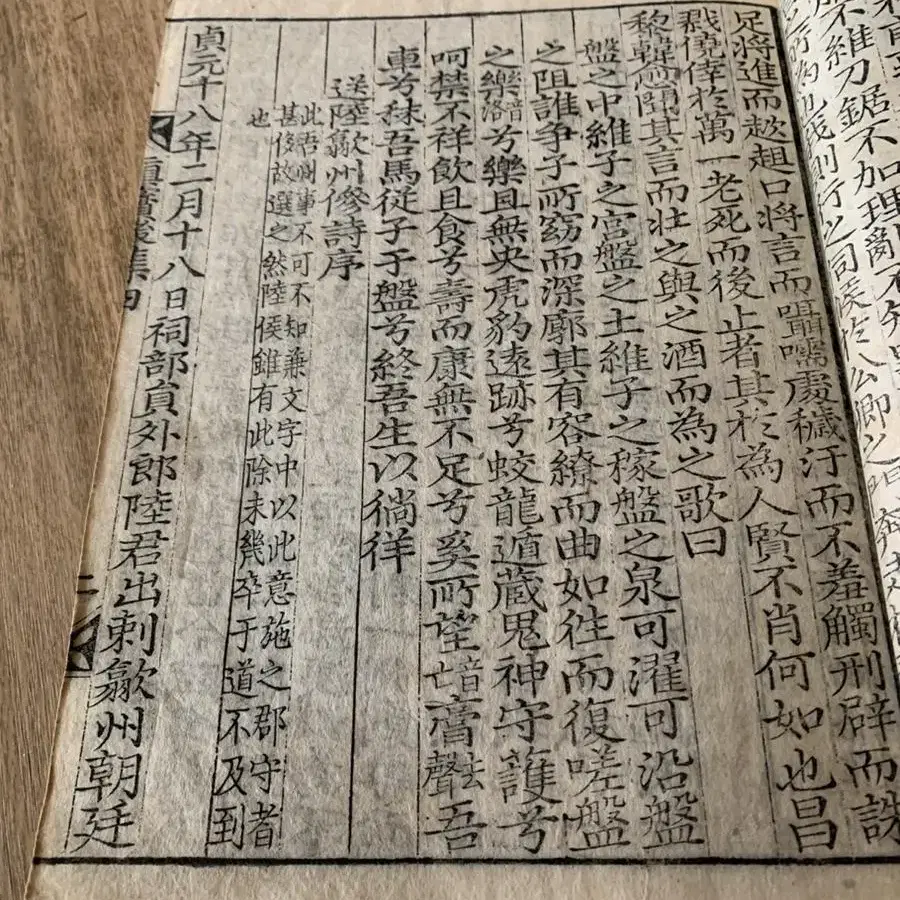 不維刀鋸不加理亂不知
為也我則行之伺候於公卿之門奔走
足將進而趑趄口將言而囁嚅處穢汙而不羞觸刑辟而誅
戮僥倖於萬一老死而後止者其於為人賢不肖何如也昌
黎韓愈聞其言而壯之與之酒而為之歌曰
盤之中維子之宮盤之土維子之稼盤之泉可濯可沿盤
之阻誰爭子所窈而深廓其有容繚而曲如徃而復嗟盤
之樂音洛兮樂且無央虎豹遠跡兮蛟龍遁藏鬼神守護兮
呵禁不祥飲且食兮壽而康無不足兮奚所望音亡膏去聲吾
車兮秣吾馬從子于盤兮終吾生以徜徉
送陸歙州傪詩序
此語事不可不知兼文字中以此意施之郡守者
甚俊故選之然陸侯雖有此除未幾卒于道不及到
也
貞元十八年二月十八日祠部員外郎陸君出刺歙州朝廷
真寶後集四
二